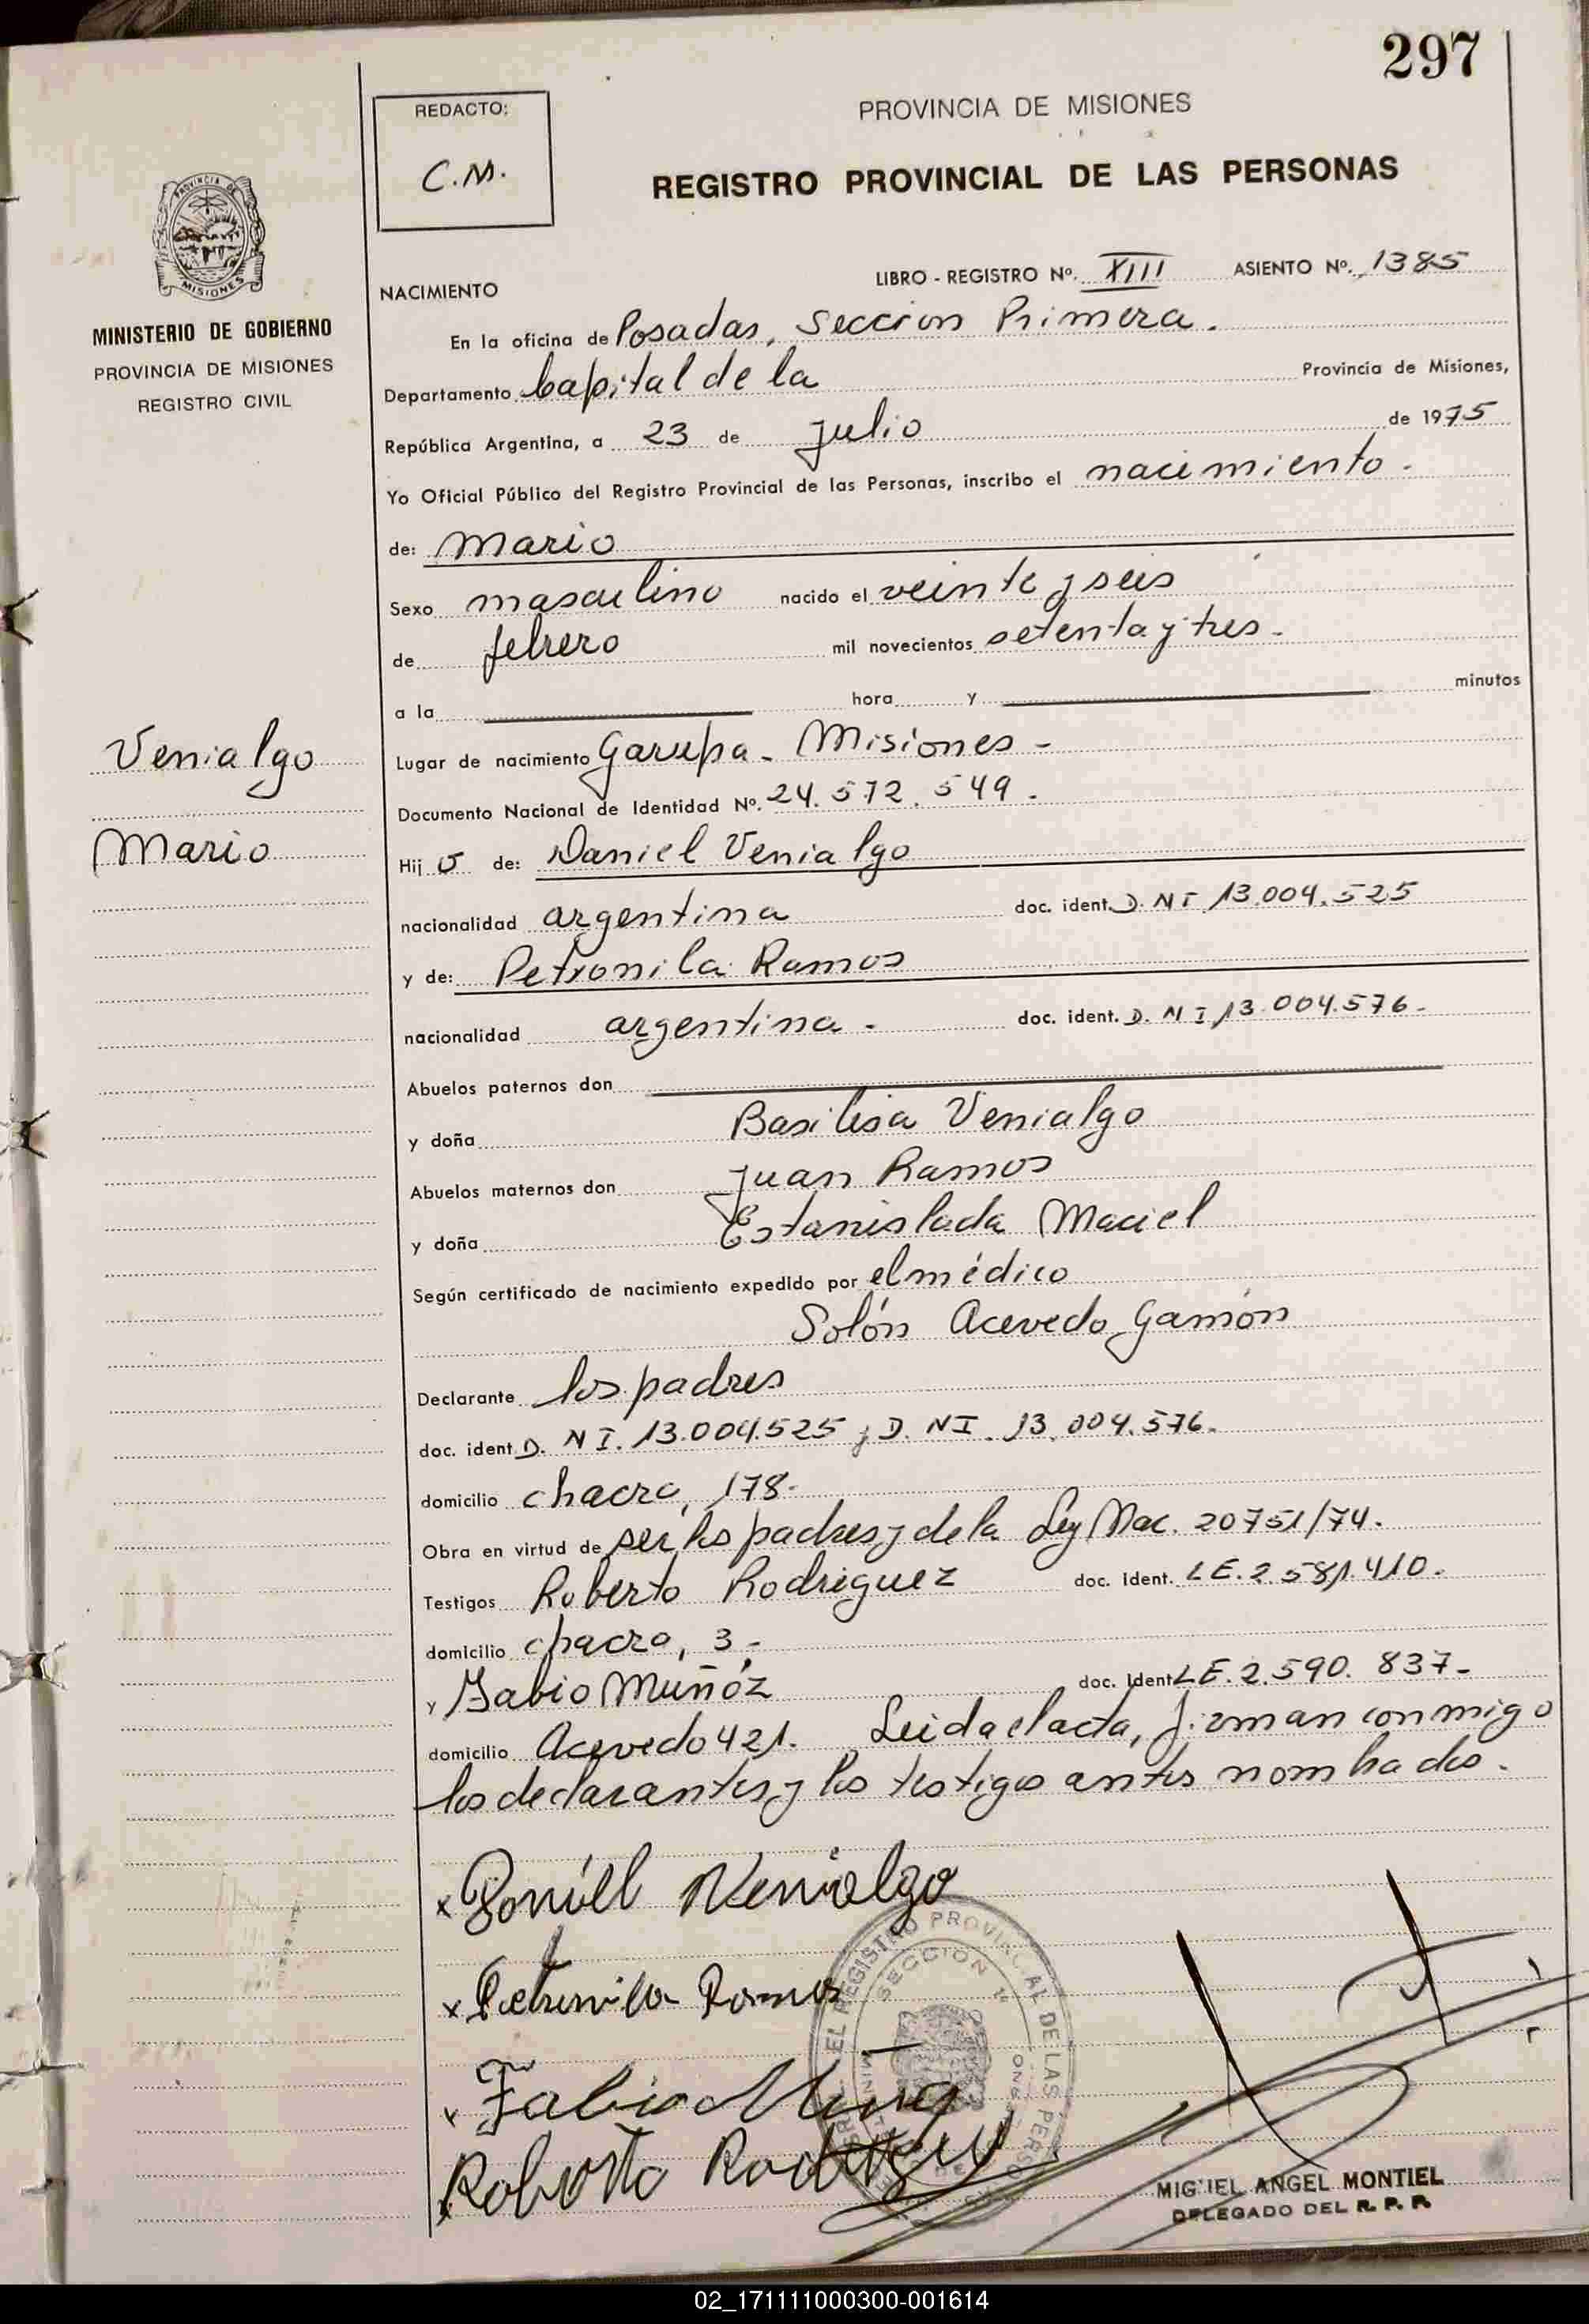 297
REDACTO:
C.M.
PROVINCIA DE MISIONES
REGISTRO PROVINCIAL DE LAS PERSONAS
PROVINCIA DE
MISIONES
MINISTERIO DE GOBIERNO
PROVINCIA DE MISIONES
REGISTRO CIVIL
NACIMIENTO LIBRO - REGISTRO Nº. XIII ASIENTO Nº. 1385
En la oficina de Posadas, Sección Primera.
Departamento Capital de la Provincia de Misiones,
República Argentina, a 23 de Julio de 1975
Yo Oficial Público del Registro Provincial de las Personas, inscribo el nacimiento.
de: Mario
Sexo masculino nacido el veinte y seis
de febrero mil novecientos setenta y tres.
a la hora y minutos
Venialgo
Lugar de nacimiento Garupa - Misiones -
Documento Nacional de Identidad Nº. 24.572.549.
Mario
Hij o de: Daniel Venialgo
nacionalidad argentina doc. ident. D.NI 13.004.525
y de: Petronila Ramos
nacionalidad argentina. doc. ident. D.NI 13.004.576-
Abuelos paternos don
y doña Basilisa Venialgo
Abuelos maternos don Juan Ramos
y doña Estanislada Maciel
Según certificado de nacimiento expedido por el médico
Solón Acevedo Gamón
Declarante los padres
doc. ident D. NI. 13.004.525 y D. NI. 13.004.576-
domicilio chacra, 178-
Obra en virtud de ser los padres y de la Ley Nac. 20751/74.
Testigos Roberto Rodriguez doc. Ident. LE.2.581.410.
domicilio chacra, 3-
y Fabio Muñóz doc. Ident LE.2.590.837-
domicilio Acevedo 421. Leida el acta, firman conmigo
los declarantes y los testigos antes nombrados.
x Daniel Venialgo
x Petronila Ramos
x Fabio
Roberto
SECCION 1ª
MIGUEL ANGEL MONTIEL
DELEGADO DEL R. P. P.
02_171111000300-001614